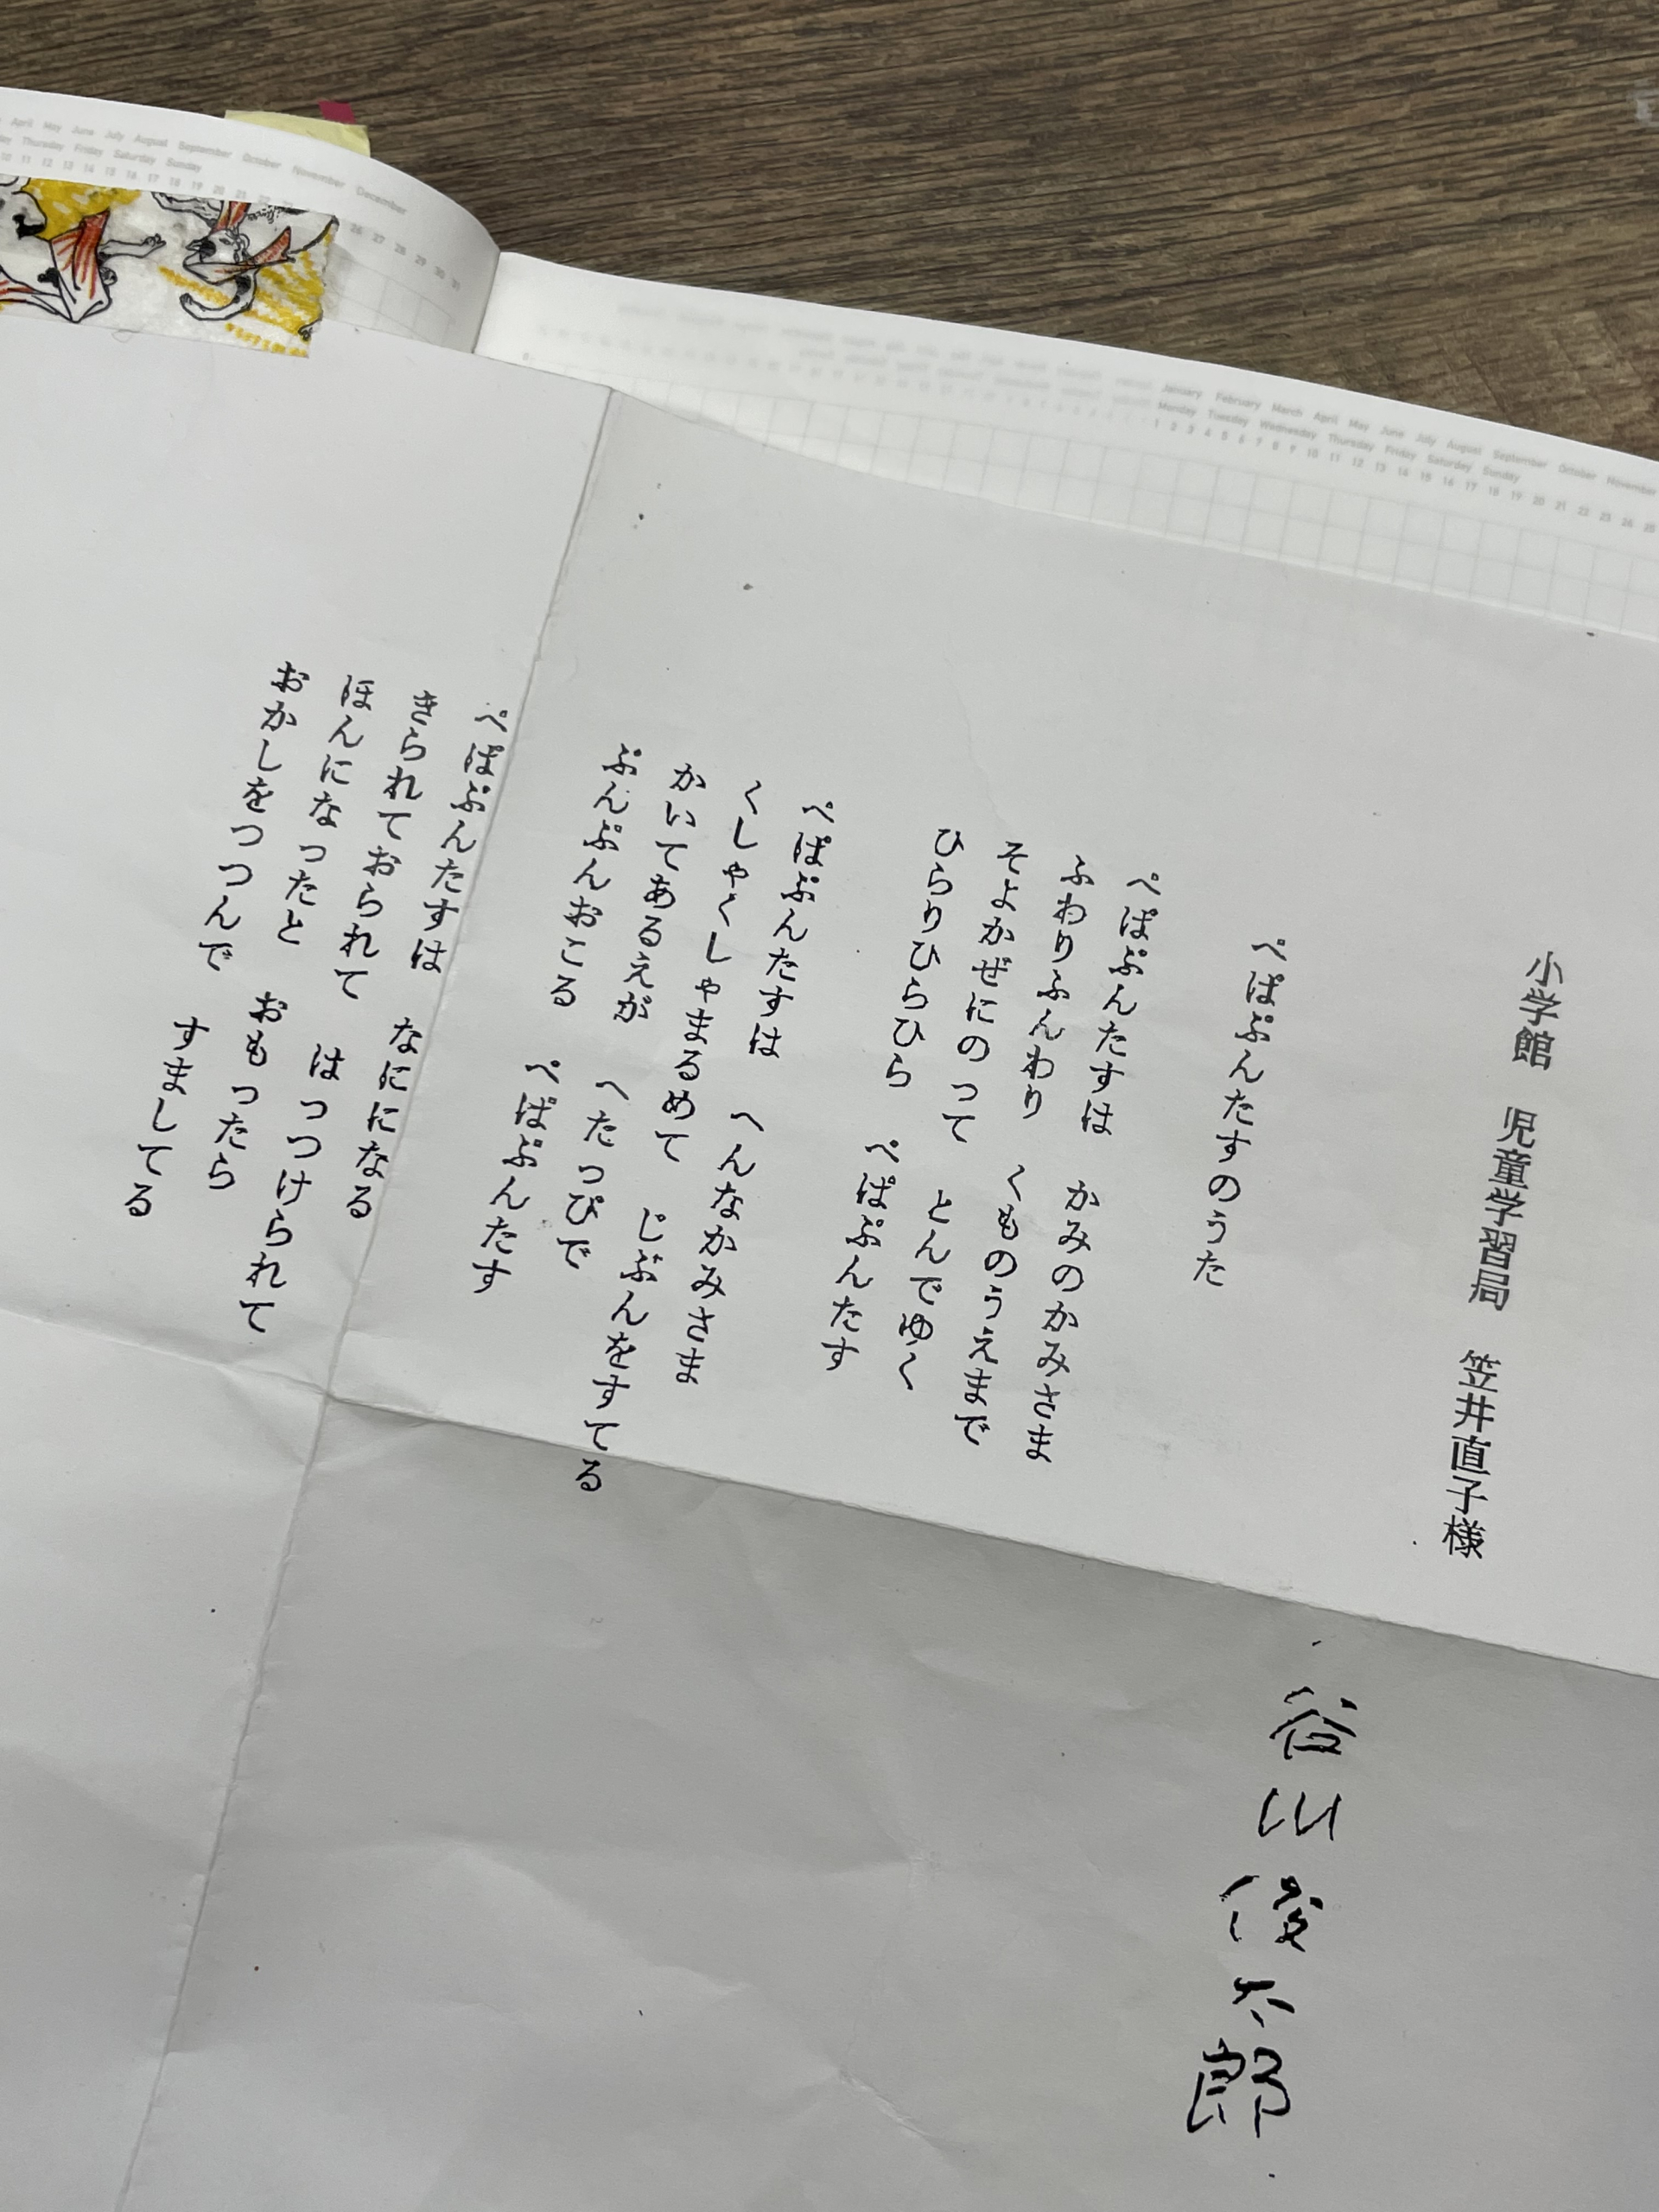 小学館　児童学習局　笠井直子様
ぺぱぷんたすのうた
谷川俊太郎
ぺぱぷんたすは　かみのかみさま
ふわりふんわり　くものうえまで
そよかぜにのって　とんでゆく
ひらりひらひら　ぺぱぷんたす
ぺぱぷんたすは　へんなかみさま
くしゃくしゃまるめて　じぶんをすてる
かいてあるえが　へたっぴで
ぷんぷんおこる　ぺぱぷんたす
ぺぱぷんたすは　なにになる
きられておられて　はっつけられて
ほんになったと　おもったら
おかしをつつんで　すましてる
April May June July August September October November December
Thursday Friday Saturday Sunday
10 11 12 13 14 15 16 17 18 19 20 21
26 27 28 29 30 31
January February March April May June July August September October November
Monday Tuesday Wednesday Thursday Friday Saturday Sunday
1 2 3 4 5 6 7 8 9 10 11 12 13 14 15 16 17 18 19 20 21 22 23 24 25